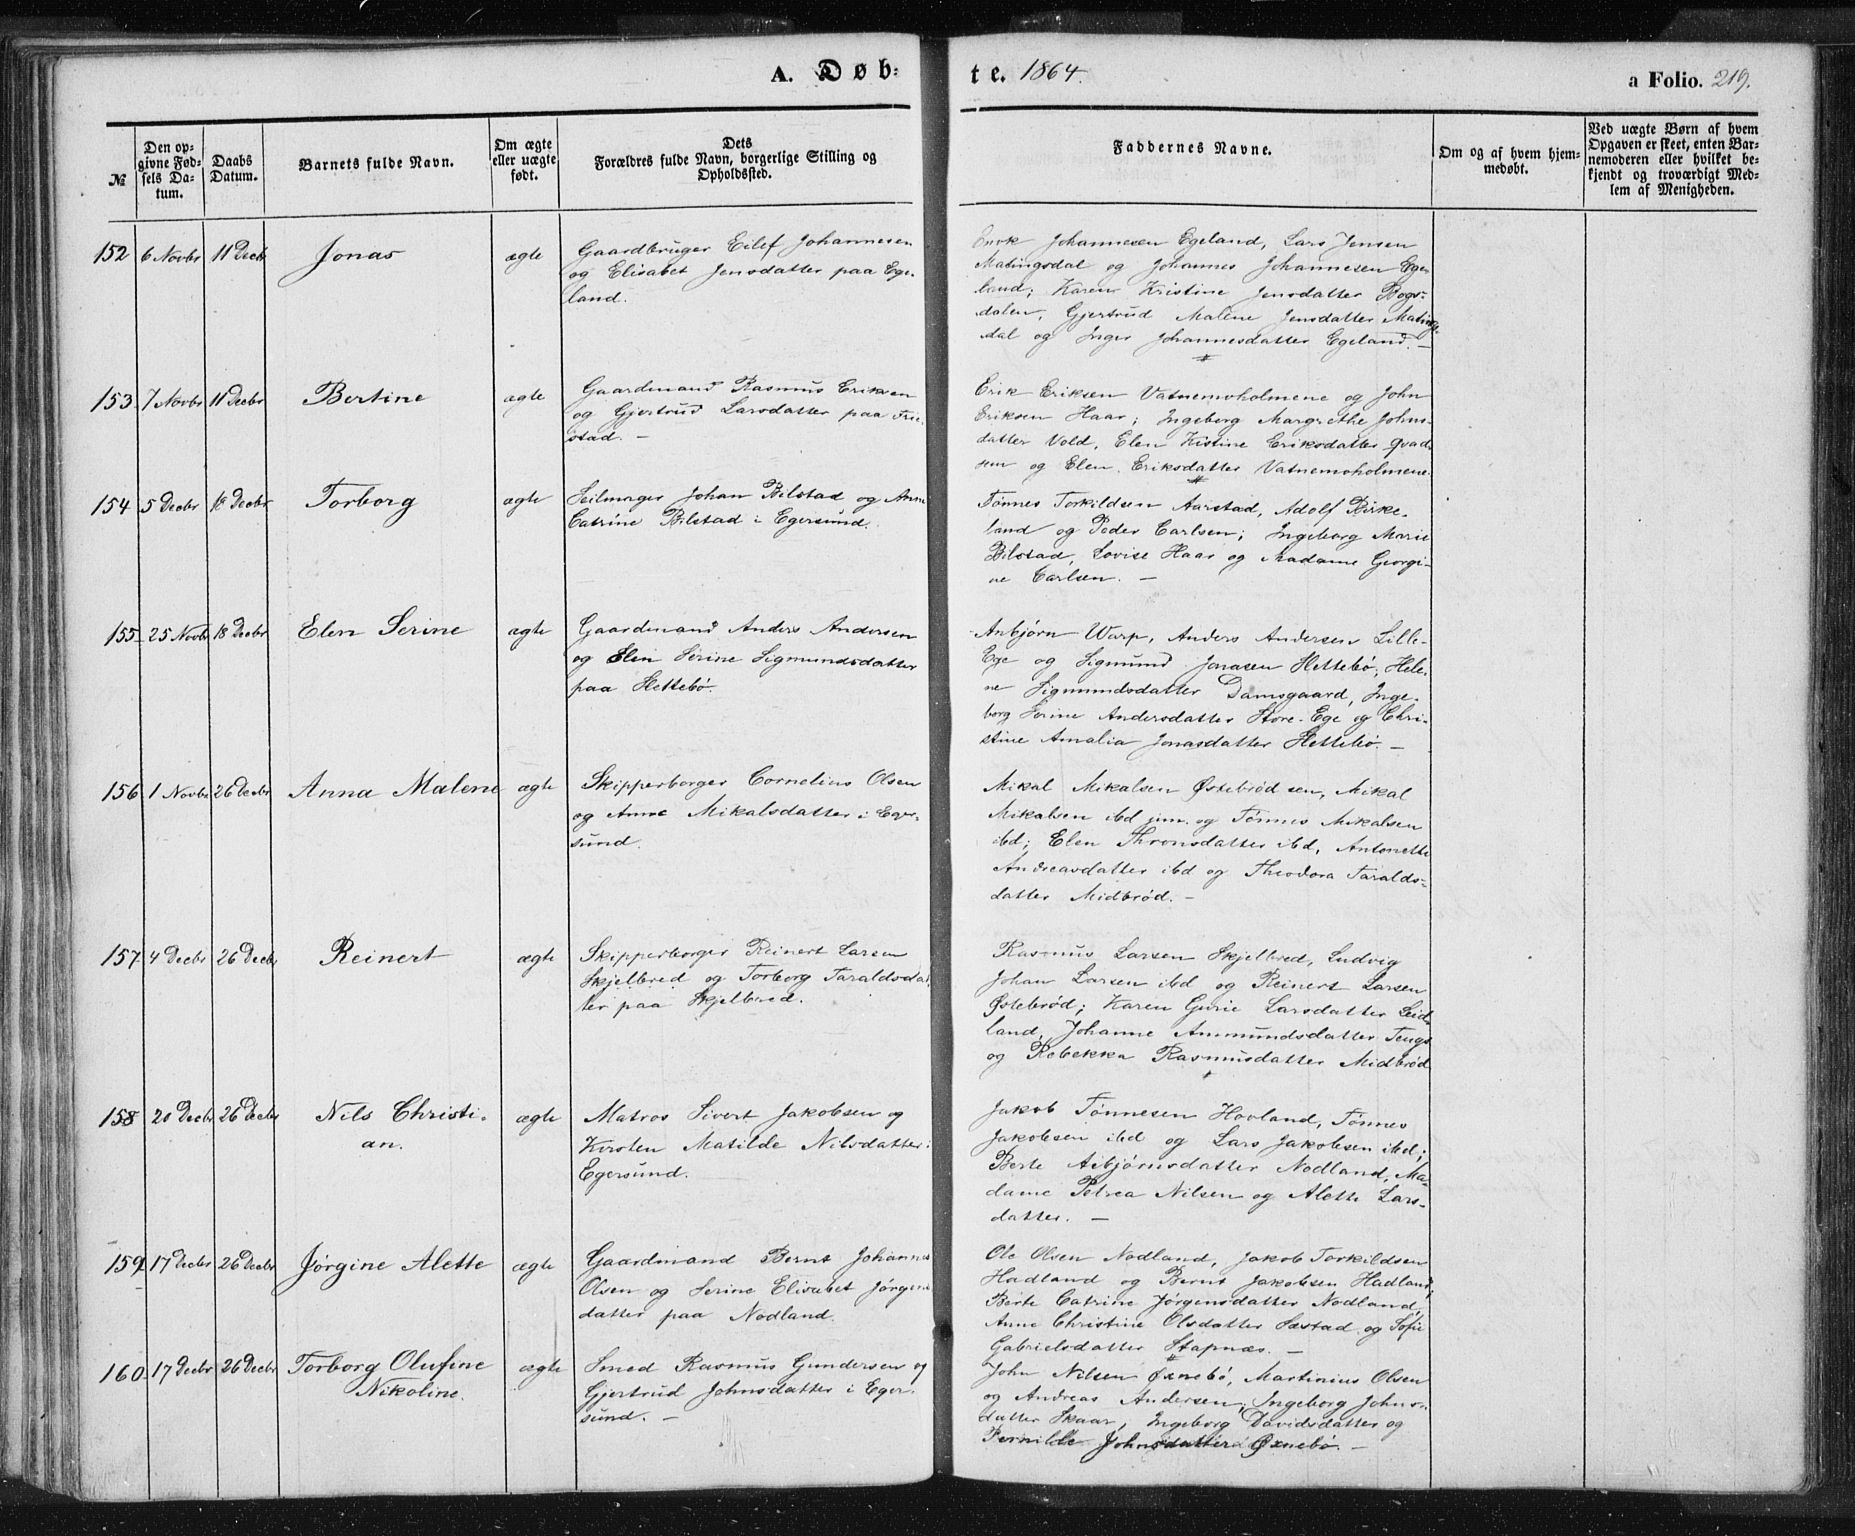 A. Døb:
te. 1864.
a Folio. 219.
№
Den op-
givne Fød-
sels Da-
tum.
Daabs
Datum.
Barnets fulde Navn.
Om ægte
eller uægte
født.
Dets
Forældres fulde Navn, borgerlige Stilling og
Opholdssted.
Faddernes Navne.
Om og af hvem hjem-
medøbt.
Ved uægte Børn af hvem
Opgaven er skeet, enten Bar-
nemoderen eller hvilket be-
kjendt og troværdigt Med-
lem af Menigheden.
152 6 Novbr 11 Decb Jonas ægte
Gaardbruger Eilef Johannesen
og Elisabet Jensdatter paa Ege-
land.
Enok Johannesen Egeland, Lars Jensen
Matingsdal og Johannes Johannesen Ege-
land; Karen Kristine Jensdatter Bogs-
dalen, Gjertrud Malene Jensdatter Matings-
dal og Inger Johannesdatter Egeland. —
153 7 Novbr 11 Decbr Bertine ægte
Gaardmand Rasmus Eriksen
og Gjertrud Larsdatter paa Frie-
stad. —
Erik Eriksen Vatnemoholmene og John
Eriksen Haar; Ingeborg Margrethe Johns-
datter Vold, Elen Kistine Eriksdatter
og Elen Eriksdatter Vatnemoholmene
154 5 Decbr 18 Decbr Torborg ægte
Seilmager Johan Bilstad og Anne
Catrine Bilstad i Egersund.
Tønnes Torkildsen Aarstad, Adolf Birke-
land og Peder Carlsen; Ingeborg Marie
Bilstad, Lovise Haar og Madame Georgi-
ne Carlsen. —
155 25 Novbr 18 Decbr Elen Serine ægte
Gaardmand Anders Andersen
og Elen Serine Sigmundsdatter
paa Hettebø.
Anbjørn Warp, Anders Andersen Lille-
Ege og Sigmund Jonasen Hettebø; Hele-
ne Sigmundsdatter Damsgaard, Inge-
borg Serine Andersdatter Store-Ege og Chri-
stine Amalia Jonasdatter Hettebø. —
156 1 Novbr 26 Decbr Anna Malene ægte
Skipperborger Cornelius Olsen
og Anne Mikalsdatter i Eger-
sund.
Mikal Mikalsen Østebrød sen, Mikal
Mikalsen ibd jun. og Tønnes Mikalsen
ibd; Elen Thronsdatter ibd, Antonette
Andreasdatter ibd og Theodora Taralds-
datter Midbrød. —
157 4 Decbr 26 Decbr Reinert ægte
Skipperborger Reinert Larsen
Skjelbred og Torborg Taraldsdat-
ter paa Skjelbred.
Rasmus Larsen Skjelbred, Ludvig
Johan Larsen ibd og Reinert Larsen
Østebrød; Karen Gurie Larsdatter Leid-
land, Johanne Ammundsdatter Tengs
og Rebekka Rasmusdatter Midbrød
158 20 Decbr 26 Decbr Nils Christi-
an. ægte
Matros Sivert Jakobsen og
Kirsten Matilde Nilsdatter i
Egersund.
Jakob Tønnesen Hovland, Tønnes
Jakobsen ibd og Lars Jakobsen ibd;
Berte Asbjørnsdatter Nodland, Ma-
dame Petrea Nilsen og Alette Lars-
datter. —
159 17 Decbr 26 Decbr Jørgine Alette ægte
Gaardmand Bernt Johannes
Olsen og Serine Elisabet Jørgens-
datter paa Nodland.
Ole Olsen Nodland, Jakob Torkildsen
Hadland og Bernt Jakobsen Hadland;
Berte Catrine Jørgensdatter Nodland,
Anne Christine Olsdatter Sæstad og Sofie
Gabrielsdatter Stapnæs. —
160 17 Decbr 26 Decbr Torborg Olufine
Nikoline. ægte
Smed Rasmus Gundersen og
Gjertrud Johnsdatter i Eger-
sund. —
John Nilsen Øxnebø, Martinius Olsen
og Andreas Andersen; Ingeborg Johns-
datter Skaar, Ingeborg Davidsdatter og
Pernille Johnsdatter Øxnebø. —